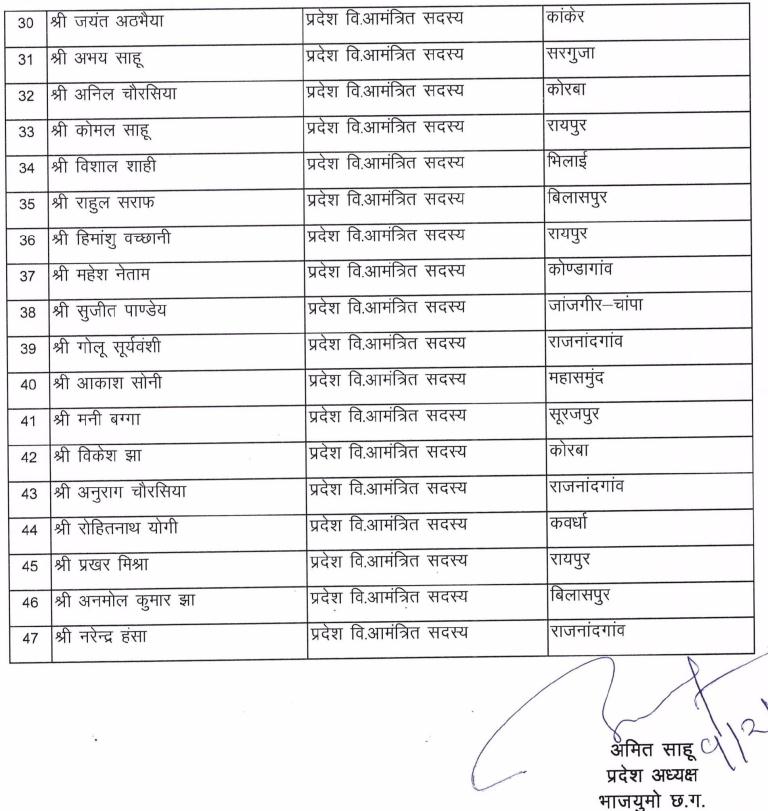 30 श्री जयंत अठभैया प्रदेश वि.आमंत्रित सदस्य कांकेर
31 श्री अभय साहू प्रदेश वि.आमंत्रित सदस्य सरगुजा
32 श्री अनिल चौरसिया प्रदेश वि.आमंत्रित सदस्य कोरबा
33 श्री कोमल साहू प्रदेश वि.आमंत्रित सदस्य रायपुर
34 श्री विशाल शाही प्रदेश वि.आमंत्रित सदस्य भिलाई
35 श्री राहुल सराफ प्रदेश वि.आमंत्रित सदस्य बिलासपुर
36 श्री हिमांशु वच्छानी प्रदेश वि.आमंत्रित सदस्य रायपुर
37 श्री महेश नेताम प्रदेश वि.आमंत्रित सदस्य कोण्डागांव
38 श्री सुजीत पाण्डेय प्रदेश वि.आमंत्रित सदस्य जांजगीर–चांपा
39 श्री गोलू सूर्यवंशी प्रदेश वि.आमंत्रित सदस्य राजनांदगांव
40 श्री आकाश सोनी प्रदेश वि.आमंत्रित सदस्य महासमुंद
41 श्री मनी बग्गा प्रदेश वि.आमंत्रित सदस्य सूरजपुर
42 श्री विकेश झा प्रदेश वि.आमंत्रित सदस्य कोरबा
43 श्री अनुराग चौरसिया प्रदेश वि.आमंत्रित सदस्य राजनांदगांव
44 श्री रोहितनाथ योगी प्रदेश वि.आमंत्रित सदस्य कवर्धा
45 श्री प्रखर मिश्रा प्रदेश वि.आमंत्रित सदस्य रायपुर
46 श्री अनमोल कुमार झा प्रदेश वि.आमंत्रित सदस्य बिलासपुर
47 श्री नरेन्द्र हंसा प्रदेश वि.आमंत्रित सदस्य राजनांदगांव
अमित साहू
प्रदेश अध्यक्ष
भाजयुमो छ.ग.